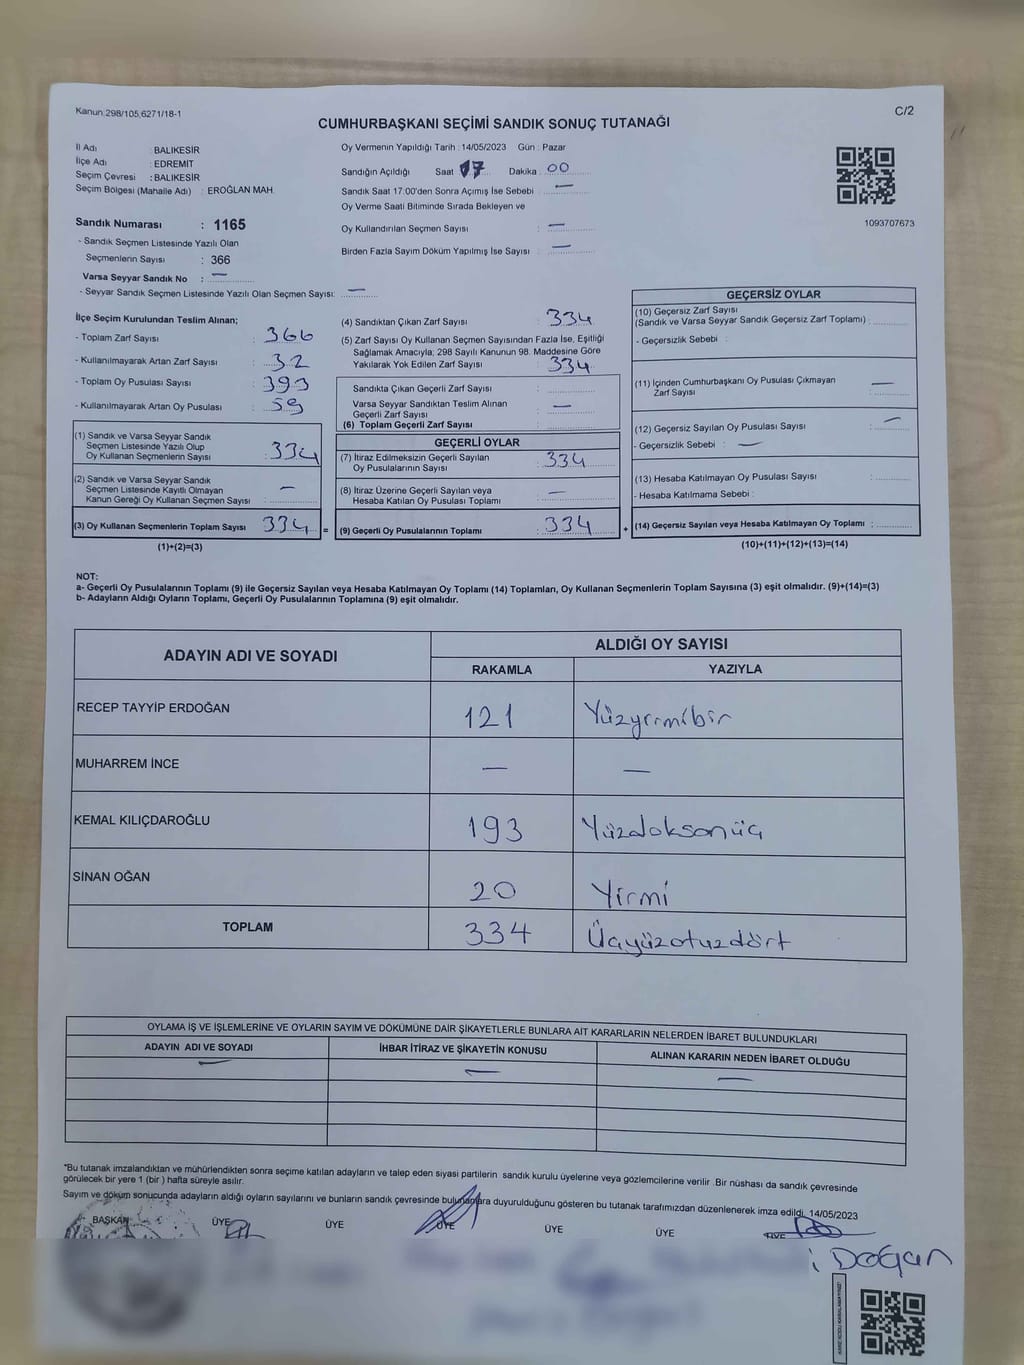 Kanun:298/105,6271/18-1
C/2
CUMHURBAŞKANI SEÇİMİ SANDIK SONUÇ TUTANAĞI
İl Adı : BALIKESİR
İlçe Adı : EDREMIT
Seçim Çevresi : BALIKESİR
Seçim Bölgesi (Mahalle Adı) : EROĞLAN MAH.
Sandık Numarası : 1165
- Sandık Seçmen Listesinde Yazılı Olan
Seçmenlerin Sayısı : 366
Varsa Seyyar Sandık No : —
- Seyyar Sandık Seçmen Listesinde Yazılı Olan Seçmen Sayısı: —
Oy Vermenin Yapıldığı Tarih : 14/05/2023 Gün : Pazar
Sandığın Açıldığı Saat 17 Dakika : 00
Sandık Saat 17:00'den Sonra Açımış İse Sebebi : —
Oy Verme Saati Bitiminde Sırada Bekleyen ve
Oy Kullandırılan Seçmen Sayısı : —
Birden Fazla Sayım Döküm Yapılmış İse Sayısı : —
1093707673
İlçe Seçim Kurulundan Teslim Alınan;
- Toplam Zarf Sayısı : 366
- Kullanılmayarak Artan Zarf Sayısı : 32
- Toplam Oy Pusulası Sayısı : 393
- Kullanılmayarak Artan Oy Pusulası : 59
(1) Sandık ve Varsa Seyyar Sandık
Seçmen Listesinde Yazılı Olup
Oy Kullanan Seçmenlerin Sayısı : 334
(2) Sandık ve Varsa Seyyar Sandık
Seçmen Listesinde Kayıtlı Olmayan
Kanun Gereği Oy Kullanan Seçmen Sayısı : —
(3) Oy Kullanan Seçmenlerin Toplam Sayısı 334 =
(1)+(2)=(3)
(4) Sandıktan Çıkan Zarf Sayısı : 334
(5) Zarf Sayısı Oy Kullanan Seçmen Sayısından Fazla İse, Eşitliği
Sağlamak Amacıyla; 298 Sayılı Kanunun 98. Maddesine Göre
Yakılarak Yok Edilen Zarf Sayısı : 334
Sandıkta Çıkan Geçerli Zarf Sayısı :
Varsa Seyyar Sandıktan Teslim Alınan
Geçerli Zarf Sayısı : —
(6) Toplam Geçerli Zarf Sayısı :
GEÇERLİ OYLAR
(7) İtiraz Edilmeksizin Geçerli Sayılan
Oy Pusulalarının Sayısı : 334
(8) İtiraz Üzerine Geçerli Sayılan veya
Hesaba Katılan Oy Pusulası Toplamı : —
(9) Geçerli Oy Pusulalarının Toplamı : 334 +
GEÇERSİZ OYLAR
(10) Geçersiz Zarf Sayısı
(Sandık ve Varsa Seyyar Sandık Geçersiz Zarf Toplamı) :
- Geçersizlik Sebebi :
(11) İçinden Cumhurbaşkanı Oy Pusulası Çıkmayan
Zarf Sayısı : —
(12) Geçersiz Sayılan Oy Pusulası Sayısı : —
- Geçersizlik Sebebi : —
(13) Hesaba Katılmayan Oy Pusulası Sayısı :
- Hesaba Katılmama Sebebi :
(14) Geçersiz Sayılan veya Hesaba Katılmayan Oy Toplamı :
(10)+(11)+(12)+(13)=(14)
NOT:
a- Geçerli Oy Pusulalarının Toplamı (9) ile Geçersiz Sayılan veya Hesaba Katılmayan Oy Toplamı (14) Toplamları, Oy Kullanan Seçmenlerin Toplam Sayısına (3) eşit olmalıdır. (9)+(14)=(3)
b- Adayların Aldığı Oyların Toplamı, Geçerli Oy Pusulalarının Toplamına (9) eşit olmalıdır.
ADAYIN ADI VE SOYADI
ALDIĞI OY SAYISI
RAKAMLA YAZIYLA
RECEP TAYYİP ERDOĞAN 121 Yüzyirmibir
MUHARREM İNCE — —
KEMAL KILIÇDAROĞLU 193 Yüzdoksanüç
SİNAN OĞAN 20 Yirmi
TOPLAM 334 Üçyüzotuzdört
OYLAMA İŞ VE İŞLEMLERİNE VE OYLARIN SAYIM VE DÖKÜMÜNE DAİR ŞİKAYETLERLE BUNLARA AİT KARARLARIN NELERDEN İBARET BULUNDUKLARI
ADAYIN ADI VE SOYADI İHBAR İTİRAZ VE ŞİKAYETİN KONUSU ALINAN KARARIN NEDEN İBARET OLDUĞU
— — —
"Bu tutanak imzalandıktan ve mühürlendikten sonra seçime katılan adayların ve talep eden siyasi partilerin sandık kurulu üyelerine veya gözlemcilerine verilir .Bir nüshası da sandık çevresinde
görülecek bir yere 1 (bir ) hafta süreyle asılır.
Sayım ve döküm sonucunda adayların aldığı oyların sayılarını ve bunların sandık çevresinde bulunanlara duyurulduğunu gösteren bu tutanak tarafımızdan düzenlenerek imza edildi. 14/05/2023
BAŞKAN ÜYE ÜYE ÜYE ÜYE ÜYE ÜYE
Doğan